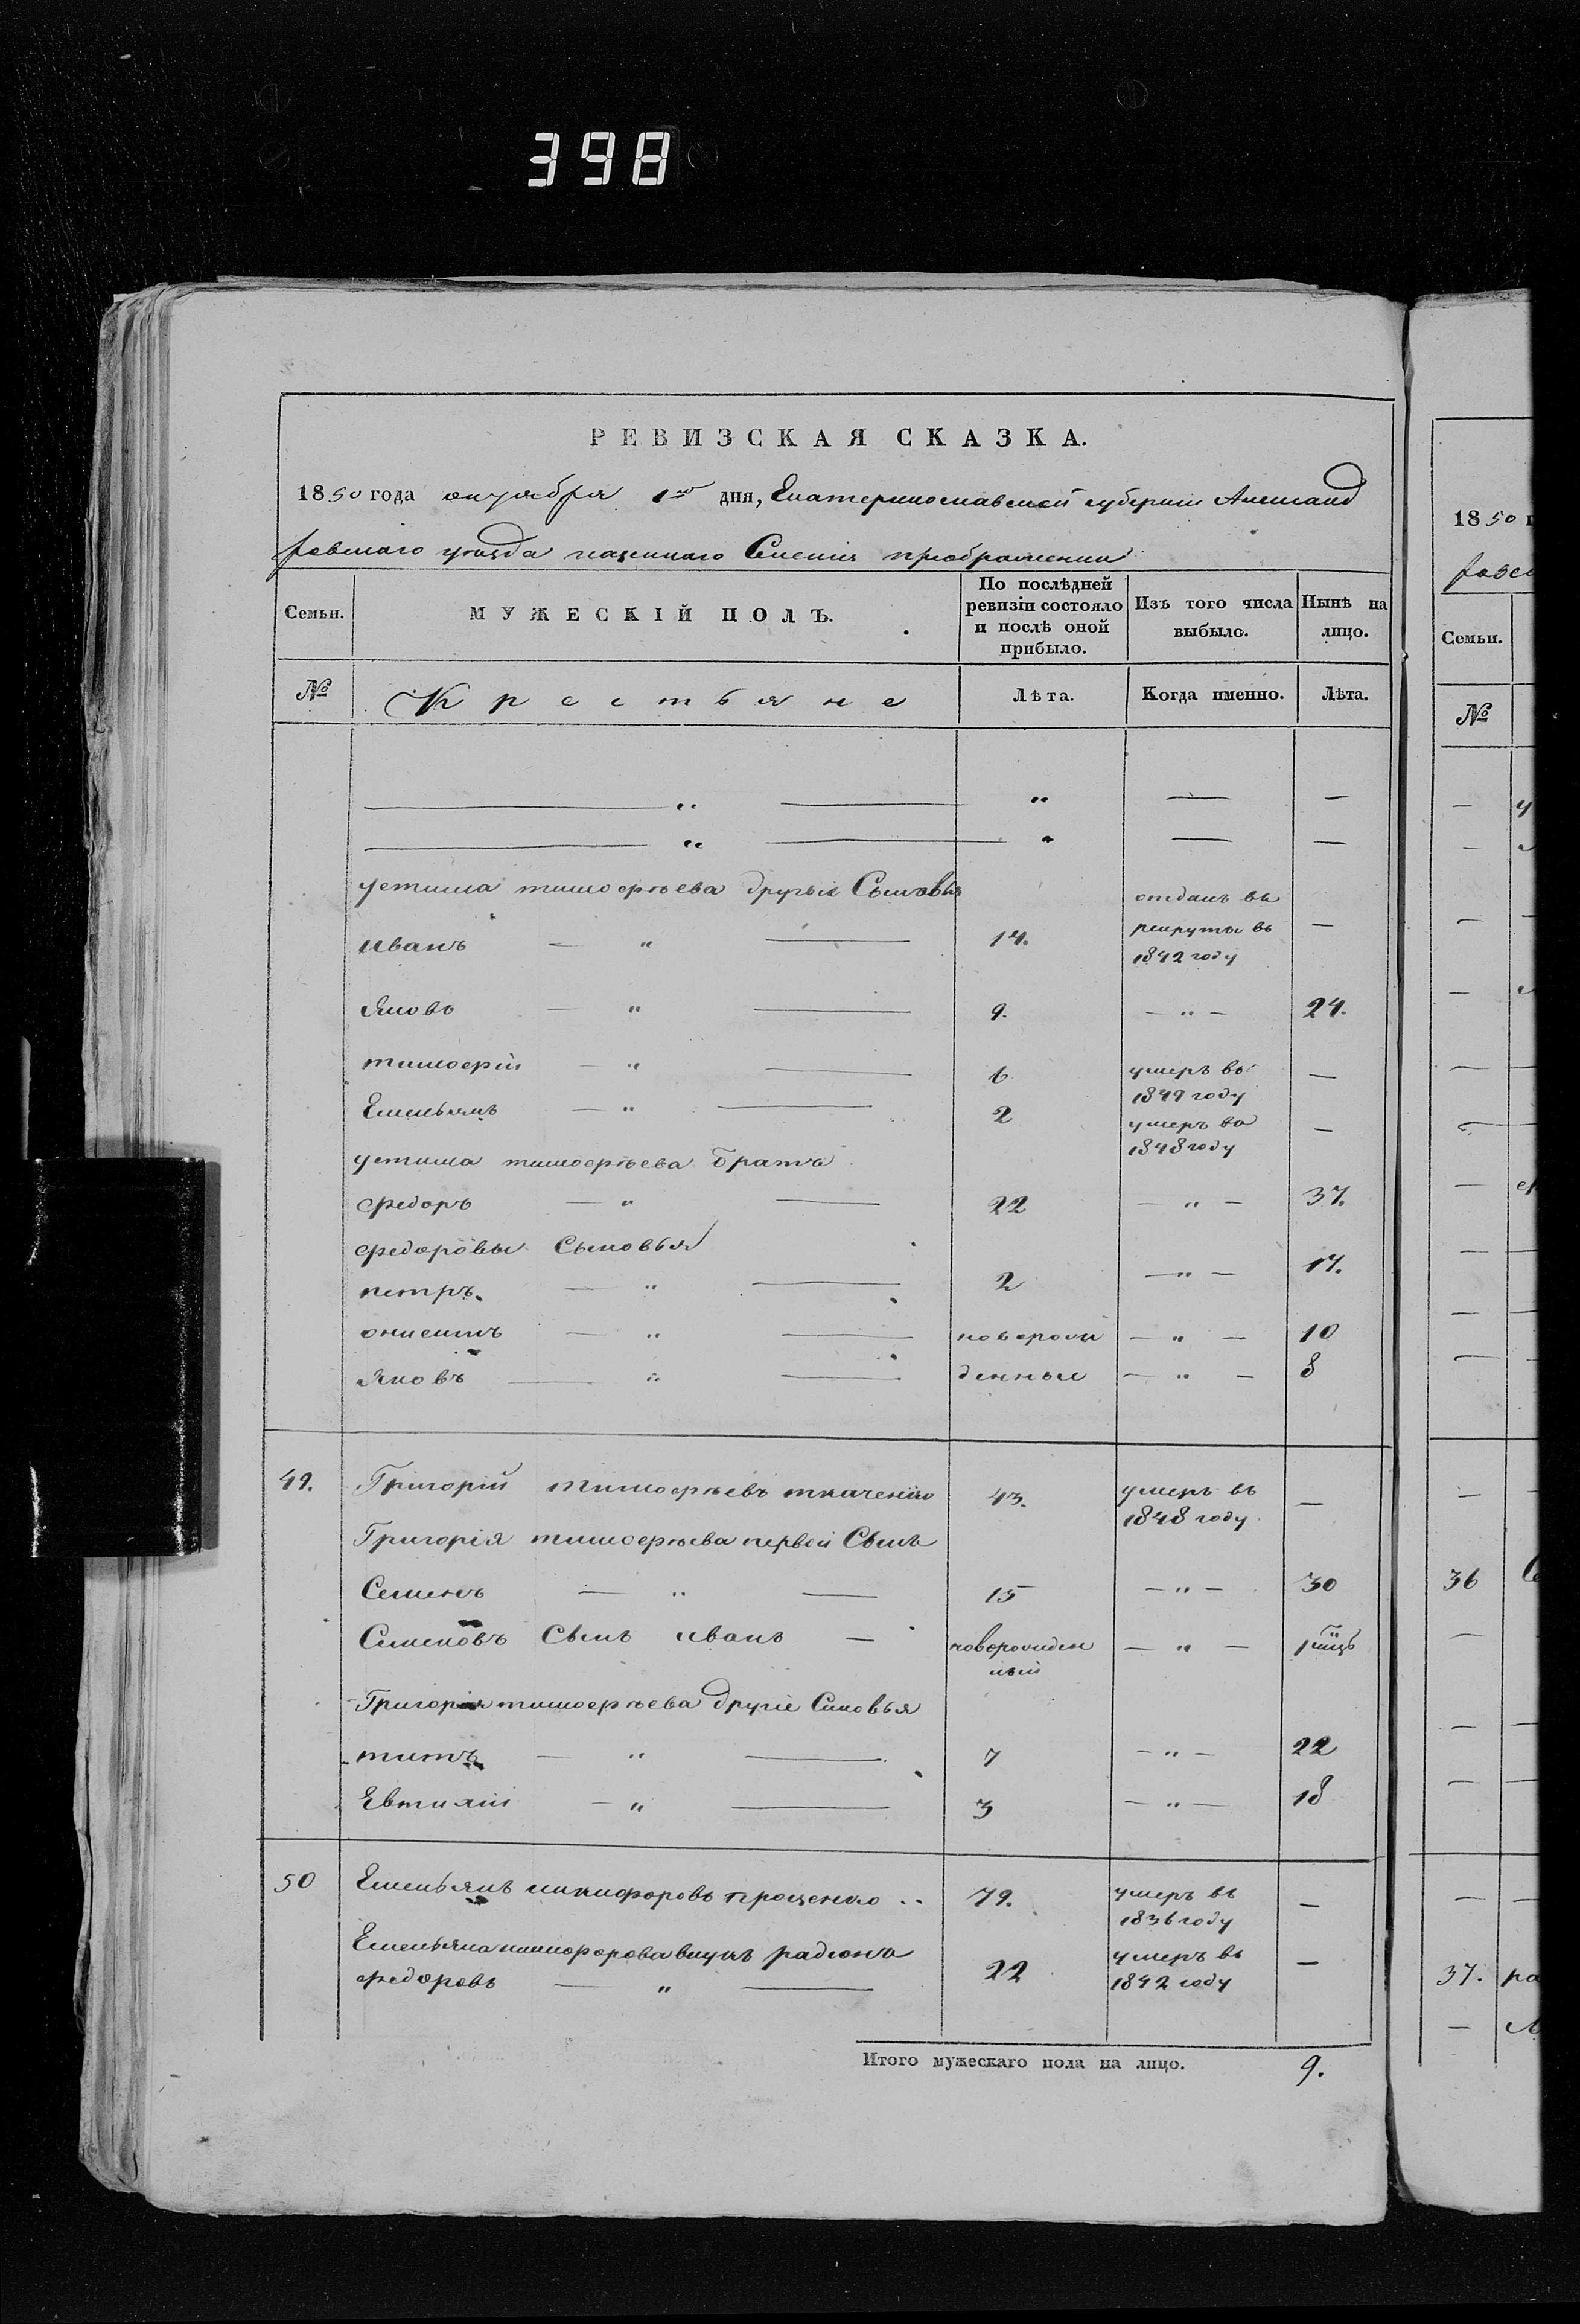 398
РЕВИЗСКАЯ СКАЗКА.
1850 года октября 1го дня, Екатеринославской губернии Александ
ровского уезда казенного Селения преображенки
Семьи.
МУЖЕСКІЙ ПОЛЪ.
По послѣдней ревизіи состояло и послѣ оной прибыло.
Изъ того числа выбыло.
Нынѣ на лицо.
№ Крестьяне Лѣта. Когда именно. Лѣта.
— „ — „ — —
— „ — „ — —
устима тимофѣева другие Сыновья
иванъ — „ — 14. отданъ въ рекруты въ 1842 году —
Яковъ — „ — 9. — „ — 24.
тимофій — „ — 6 умеръ въ 1849 году —
Емельянъ — „ — 2 умеръ въ 1848 году —
устима тимофѣева братъ
федоръ — „ — 22 — „ — 37.
федоровы Сыновья
петръ — „ — 2 — „ — 17.
онисимъ — „ — новорож — „ — 10
Яковъ — „ — денные — „ — 8
49. Григорій тимофѣевъ ткаченко 43. умеръ въ 1848 году —
Григорія тимофѣева первой Сынъ
Семенъ — „ — 15 — „ — 30
Семеновъ Сынъ иванъ — новорожден ный — „ —
Григорія тимофѣева другіе Синовья
титъ — „ — 7 — „ — 22
Евтихій — „ — 3 — „ — 18
50 Емельянъ никифоровъ проценко .. 79. умеръ въ 1836 году —
Емельяна никифорова внукъ радионъ
федоровъ — „ — 22 умеръ въ 1842 году —
Итого мужескаго пола на лицо. 9.
1850
Семьи.
№
36
37. ра